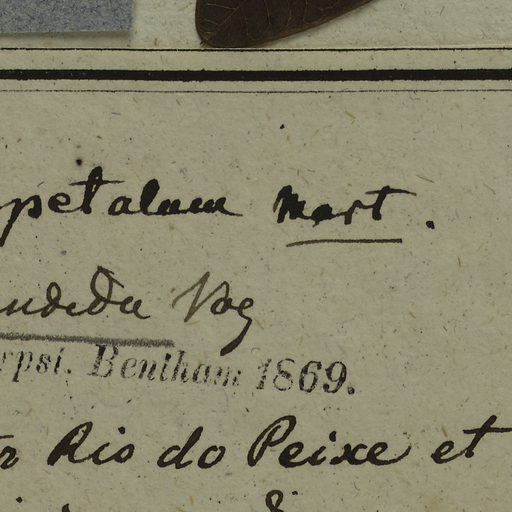 petalum Mart.
andida Vog
rpsi. Bentham 1869.
Rio do Peixe et